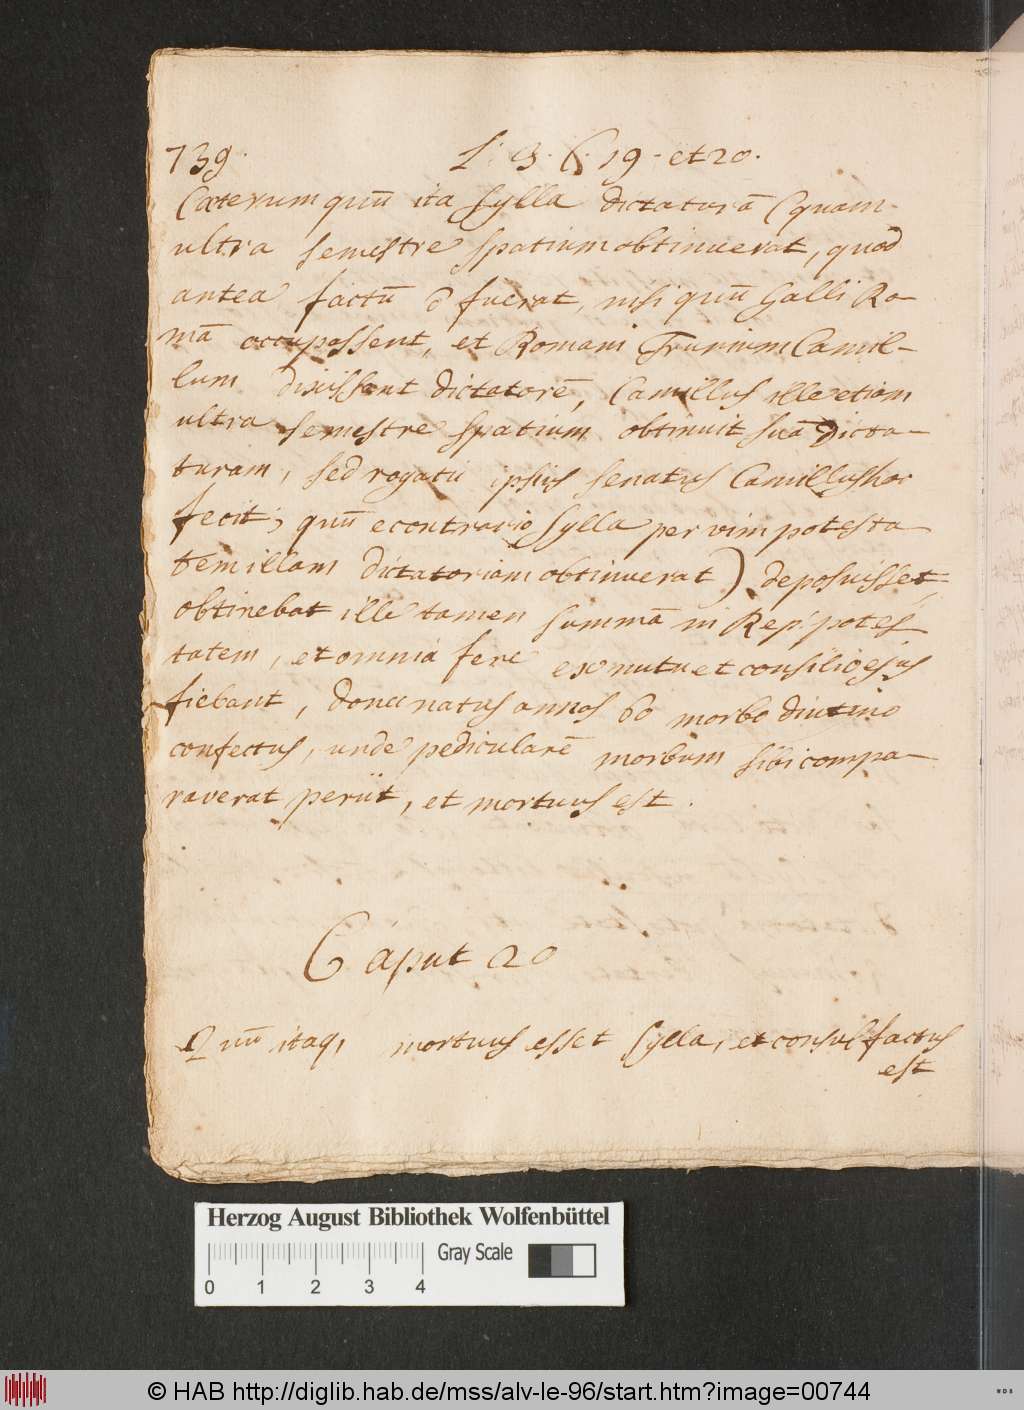 739.
L. 3. C. 19. et 20.
Cæterum quū ita Sylla dictaturā (quam
ultra semestre spatium obtinuerat, quod
antea factū ō fuerat, nisi quū Galli Ro-
mā occupassent, et Romani Frurium Camil-
lum dixissent dictatorē, Camillus ille etiam
ultra semestre spatium obtinuit suā dicta-
turam, sed rogatu ipsius senatus Camillus hoc
fecit; quū econtrario Sylla per vim potesta-
tem illam dictatoriam obtinuerat) deposuisset,
obtinebat ille tamen summā in Rep. potes-
tatem, et omnia fere ex nutu et consilio ejus
fiebant, donec natus annos 60 morbo diutino
confectus, unde pedicularē morbum sibi compa-
raverat periit, et mortuus est.
Caput 20
Quū itaq, mortuus esset Sylla, et consul factus
est
Herzog August Bibliothek Wolfenbüttel
Gray Scale
0 1 2 3 4
© HAB http://diglib.hab.de/mss/alv-le-96/start.htm?image=00744